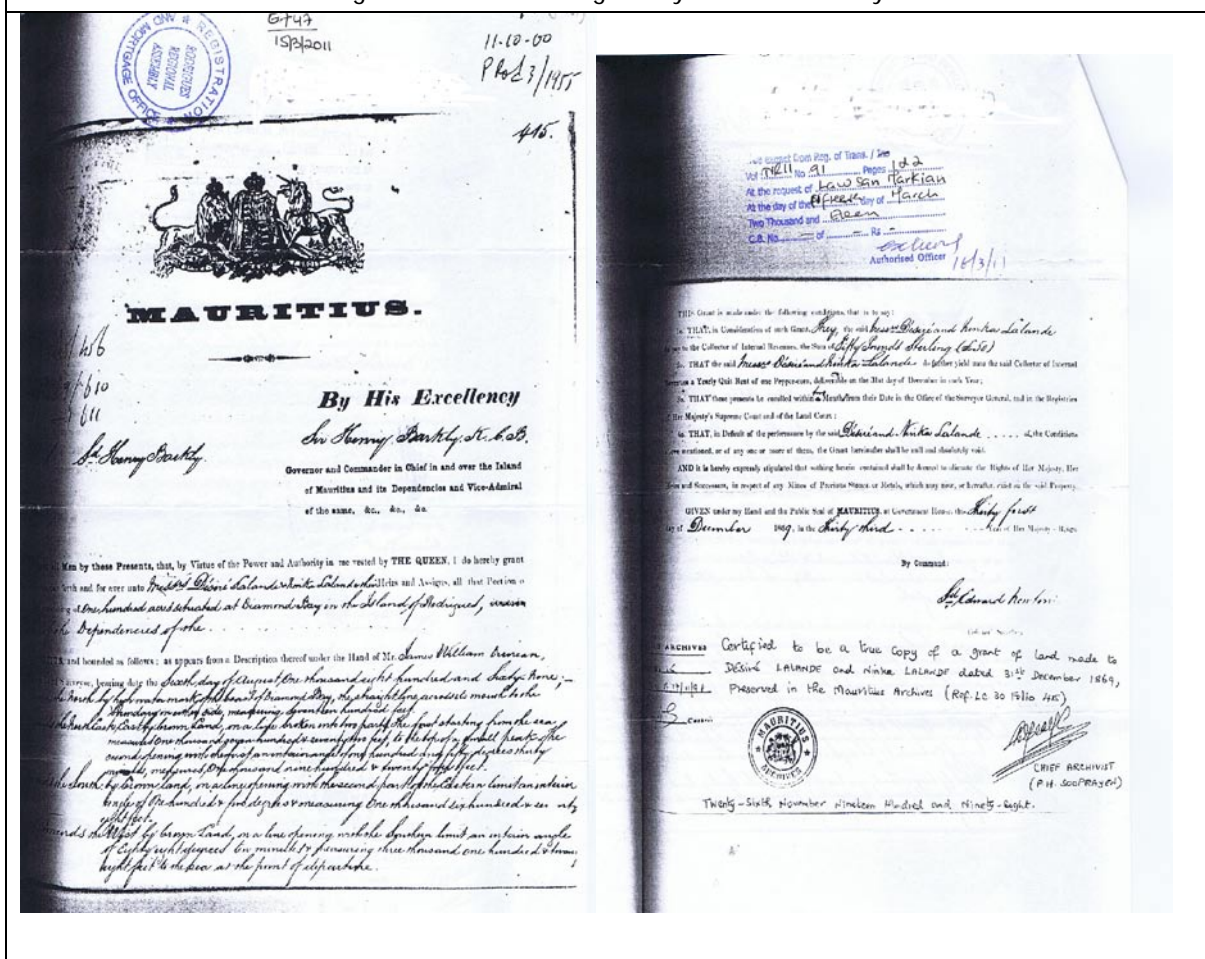 G747
15/3/2011
11-10-00
PRod 3/1955
REGISTRATION AND MORTGAGE OFFICE
RODRIGUES
REGIONAL
ASSEMBLY
415.
MAURITIUS.
By His Excellency
Sir Henry Barkly. K.C.B.
Sd. Henry Barkly.
Governor and Commander in Chief in and over the Island
of Mauritius and its Dependencies and Vice-Admiral
of the same, &c., &c., &c.
Men by these Presents, that, by Virtue of the Power and Authority in me vested by THE QUEEN, I do hereby grant
and for ever unto Messrs Désiré Lalande & Ninka Lalande their Heirs and Assigns, all that Portion o
One hundred acres situated at Diamond Bay in the Island of Rodrigues,
Dependencies of the
and bounded as follows: as appears from a Description thereof under the Hand of Mr. James William
bearing date the Sixth day of August, One thousand eight hundred and Sixty Nine;
North by high water mark of the coast of Diamond Bay, the straight line across its mouth to the
boundary on other side, measuring seventeen hundred feet.
by Crown Land, on a line broken into two parts the first starting from the sea
measures One thousand hundred & seventy two feet, to the top of a small peak the
second opening with the first an interior angle of one hundred and fifty degrees thirty
minutes, measures, One thousand nine hundred & twenty feet.
South, by Crown Land, on a line opening with the second part of the Eastern limit an interior
angle of One hundred & five degrees & measuring One thousand six hundred & seventy
eight feet.
West by Crown Land, on a line opening with the Southern limit an interior angle
of Eighty eight degrees ten minutes & measuring three thousand one hundred &
eight feet to the sea at the point of departure.
extract from Reg. of Trans. /
Vol TR11 No 91 Pages 1 & 2
At the request of Law San Markian
At the day of the Fifteen day of March
Two Thousand and Eleven
C.B. No. – of – Rs –
Authorised Officer
THIS Grant is made under the following conditions, that is to say:
THAT, in Consideration of such Grant, They, the said Messrs Désiré and Ninka Lalande
to the Collector of Internal Revenues, the Sum of Fifty Pounds Sterling (£50)
THAT the said Messrs Désiré and Ninka Lalande do further yield unto the said Collector of Internal
a Yearly Quit Rent of one Pepper-corn, deliverable on the 31st day of December in each Year;
THAT these presents be enrolled within Months from their Date in the Office of the Surveyor General, and in the Registries
Her Majesty's Supreme Court and of the Land Court;
THAT, in Default of the performance by the said Désiré and Ninka Lalande of, the Conditions
mentioned, or of any one or more of them, the Grant hereinafter shall be null and absolutely void.
AND it is hereby expressly stipulated that nothing herein contained shall be deemed to alienate the Rights of Her Majesty, Her
and Successors, in respect of any Mines of Precious Stones or Metals, which may now, or hereafter, exist on the said Property.
GIVEN under my Hand and the Public Seal of MAURITIUS, at Government House, this Thirty first
day of December 1869, in the Thirty third Year of Her Majesty's Reign.
By Command:
Sd. Edward Newton.
Colonial Secretary
ARCHIVES Certified to be a true copy of a grant of land made to
Désiré LALANDE and Ninka LALANDE dated 31st December 1869,
Preserved in the Mauritius Archives (Ref. LC 30 415)
MAURITIUS ARCHIVES
CHIEF ARCHIVIST
(P.H. SOOPRAYEN)
Twenty-Sixth November Nineteen Hundred and Ninety-Eight.